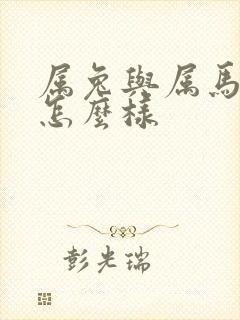 属兔與属馬
怎麼樣
彭光瑞